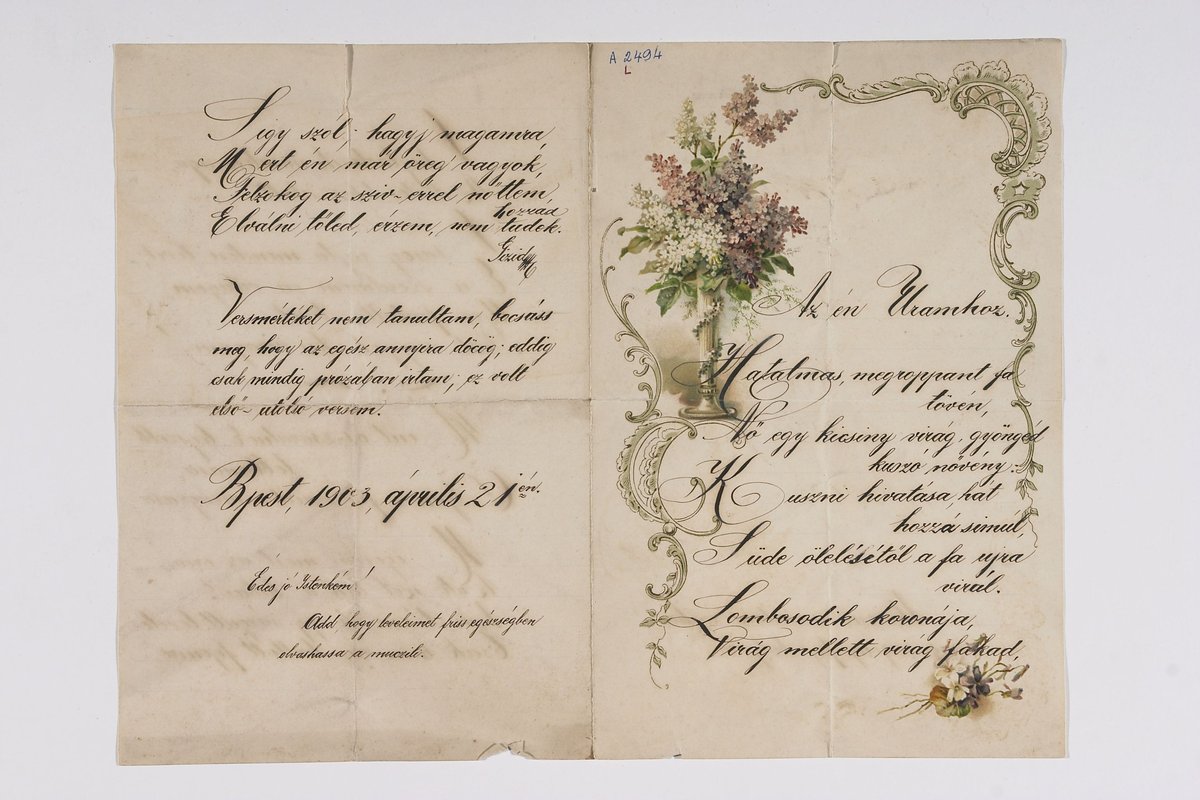 S így szól: hagyj magamra,
Mert én már öreg vagyok,
Felzokog az szív-errel nőttem,
hozzád
Elválni tőled, érzem, nem tudok.
Gizid
Versmértéket nem tanultam, bocsáss
meg, hogy az egész annyira döcög; eddig
csak mindig prózában irtam; ez volt
első-utolsó versem.
Bpest, 1903, április 21 én.
Édes jó Istenkém!
Add, hogy leveleimet friss egészségben
olvashassa a muczili.
A 2494
L
Az én Uramhoz.
Hatalmas, megroppant fa
tövén,
Nő egy kicsiny virág, gyönged
kuszó növény.
Kuszni hivatása, hát
hozzá simúl,
Süde ölelésétől a fa ujra
virúl.
Lombosodik koronája,
Virág mellett virág fakad,